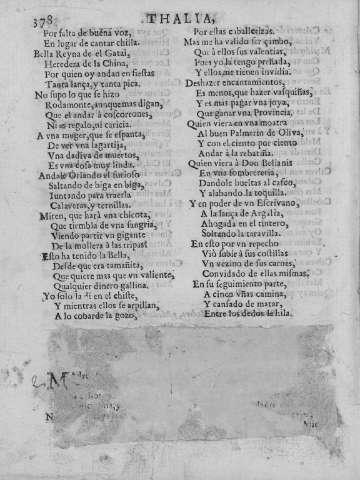 378 THALIA,
Por falta de buena voz,
En lugar de cantar chilla.
Bella Reyna de el Gatai,
Heredera de la China,
Por quien oy andan en fiestas
Tanta lança, y tanta pica.
No supo lo que se hizo
Rodamonte, aunquemas digan,
Que el andar à coscorrones,
Ni es regalo, ni caricia.
A vna muger, que se espanta,
De ver vna lagartija,
Vna dadiva de muertos,
Es vna cosa muy linda.
Andale Orlando el furioso
Saltando de biga en biga,
Iuntando para traerla
Calaveras, y ternillas.
Miren, que harà vna chicota,
Que tiembla de vna sangria,
Viendo partir vn gigante
De la mollera à las tripas?
Esto ha tenido la Bella,
Desde que era tamañita,
Que quiere mas que vn valiente,
Qualquier dinero gallina.
Yo solo la di en el chiste,
Y mientras ellos se arpillan,
A lo cobarde la gozo,
Por estas caballerizas.
Mas me ha valido ser çambo,
Que à ellos sus valentias,
Pues yo la tengo preñada,
Y ellos me tienen invidia.
Deshazer encantamientos,
Es menos, que hazer vasquiñas,
Y es mas pagar vna joya,
Que ganar vna Provincia.
Quien viera en vna moatra
Al buen Palmerin de Oliva,
Y con el ciento por ciento
Andar à la rebatiña.
Quien vierà à Don Belianis
En vna sombrereria,
Dandole bueltas al casco,
Y alabando la toquilla.
Y en poder de vn Escrivano,
A la lança de Argalia,
Ahogada en el tintero,
Soltando la taravilla.
En esto por vn repecho
Viò subir à sus costillas
Vn vezino de sus carnes,
Convidado de ellas mismas,
En su seguimiento parte,
A cinco vñas camina,
Y cansado de matar,
Entre los dedos le hila.